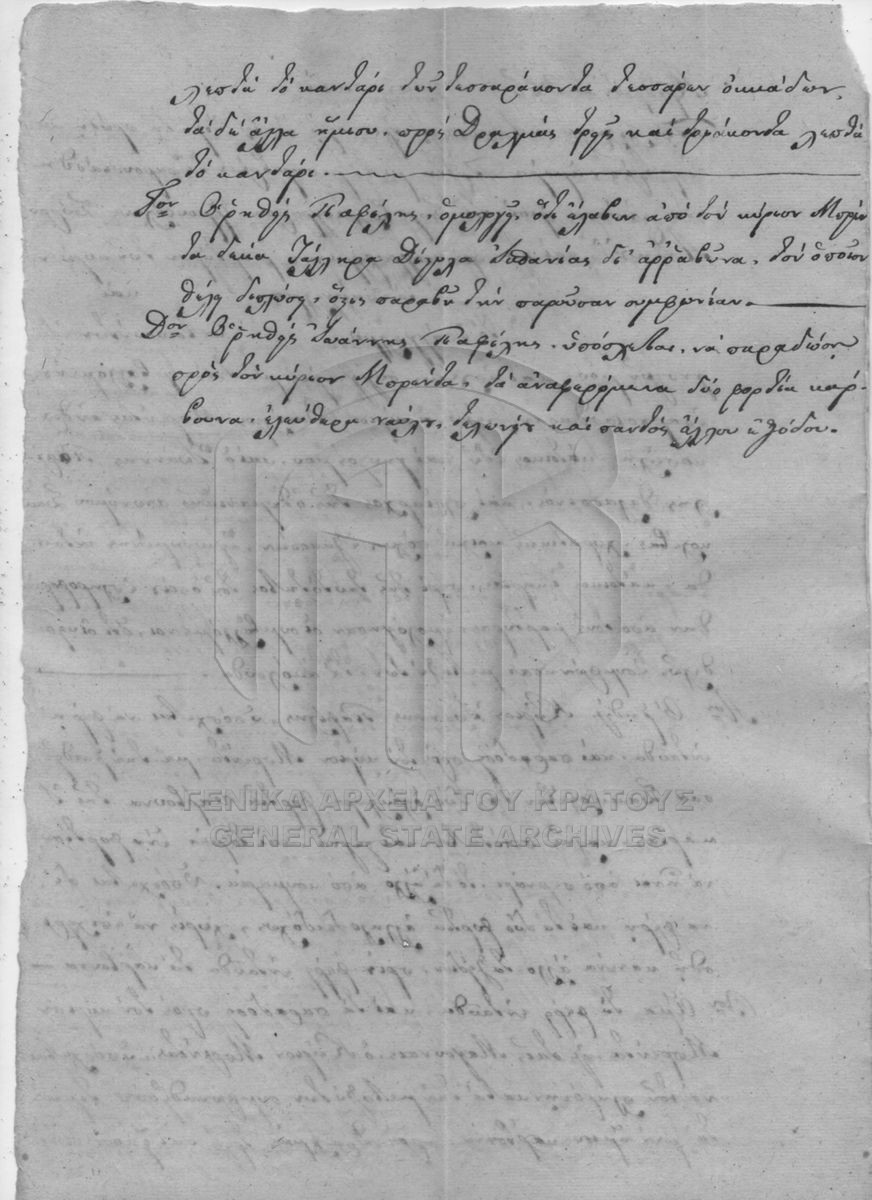 λεπτά τό καντάρι τῶν τεσσαράκοντα τεσσάρων ὀκκάδων,
τά δέ ἄλλα ἥμισυ, πρός Δραχμάς τρεῖς καί τριάκοντα λεπτά
τό καντάρι.
Γον Ὁ ῥηθείς Παβέλης, ὁμολογεῖ, ὅτι ἔλαβεν ἀπό τόν κύριον Μορέν
τα δέκα Τάλληρα Δίστηλα Ἰσπανίας δι' ἀῤῥαβῶνα, τόν ὁποῖον
θέλει διπλώσει, ὅστις παραβῇ τήν παροῦσαν συμφωνίαν.
Δον Ὁ ῥηθείς Ἰωάννης Παβέλης, ὑπόσχεται, νά παραδώσῃ
πρός τόν κύριον Μορέντα, τά ἀναφερόμενα δύο φορτία κάρ-
βουνα, ἐλεύθερα ναύλου, τελωνίου καί παντός ἄλλου ἐξόδου.
ΓΕΝΙΚΑ ΑΡΧΕΙΑ ΤΟΥ ΚΡΑΤΟΥΣ
GENERAL STATE ARCHIVES